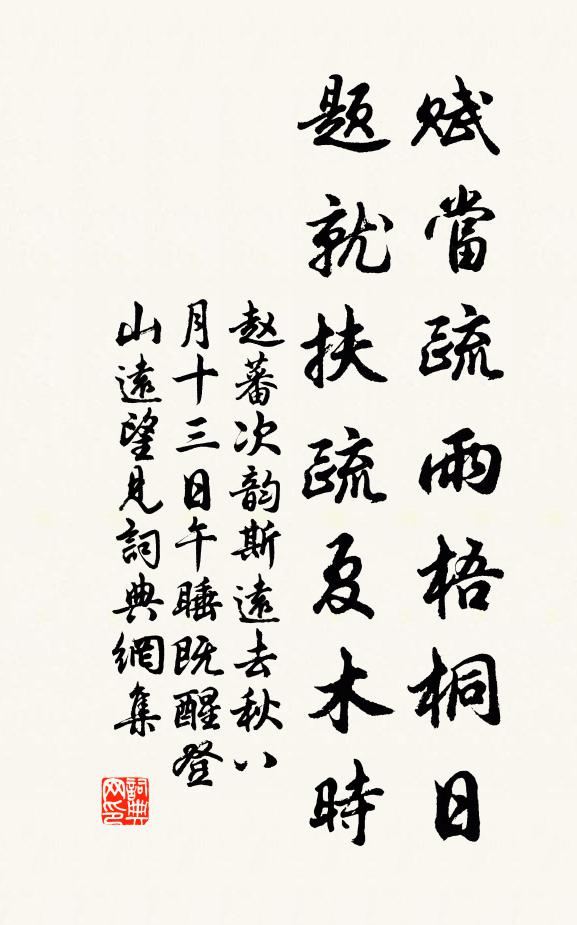 賦當疏雨梧桐日
题就扶疏夏木時
赵蕃次韵斯遠去秋八
月十三日午睡既醒登
山遠望見詞典網集
詞典
网印